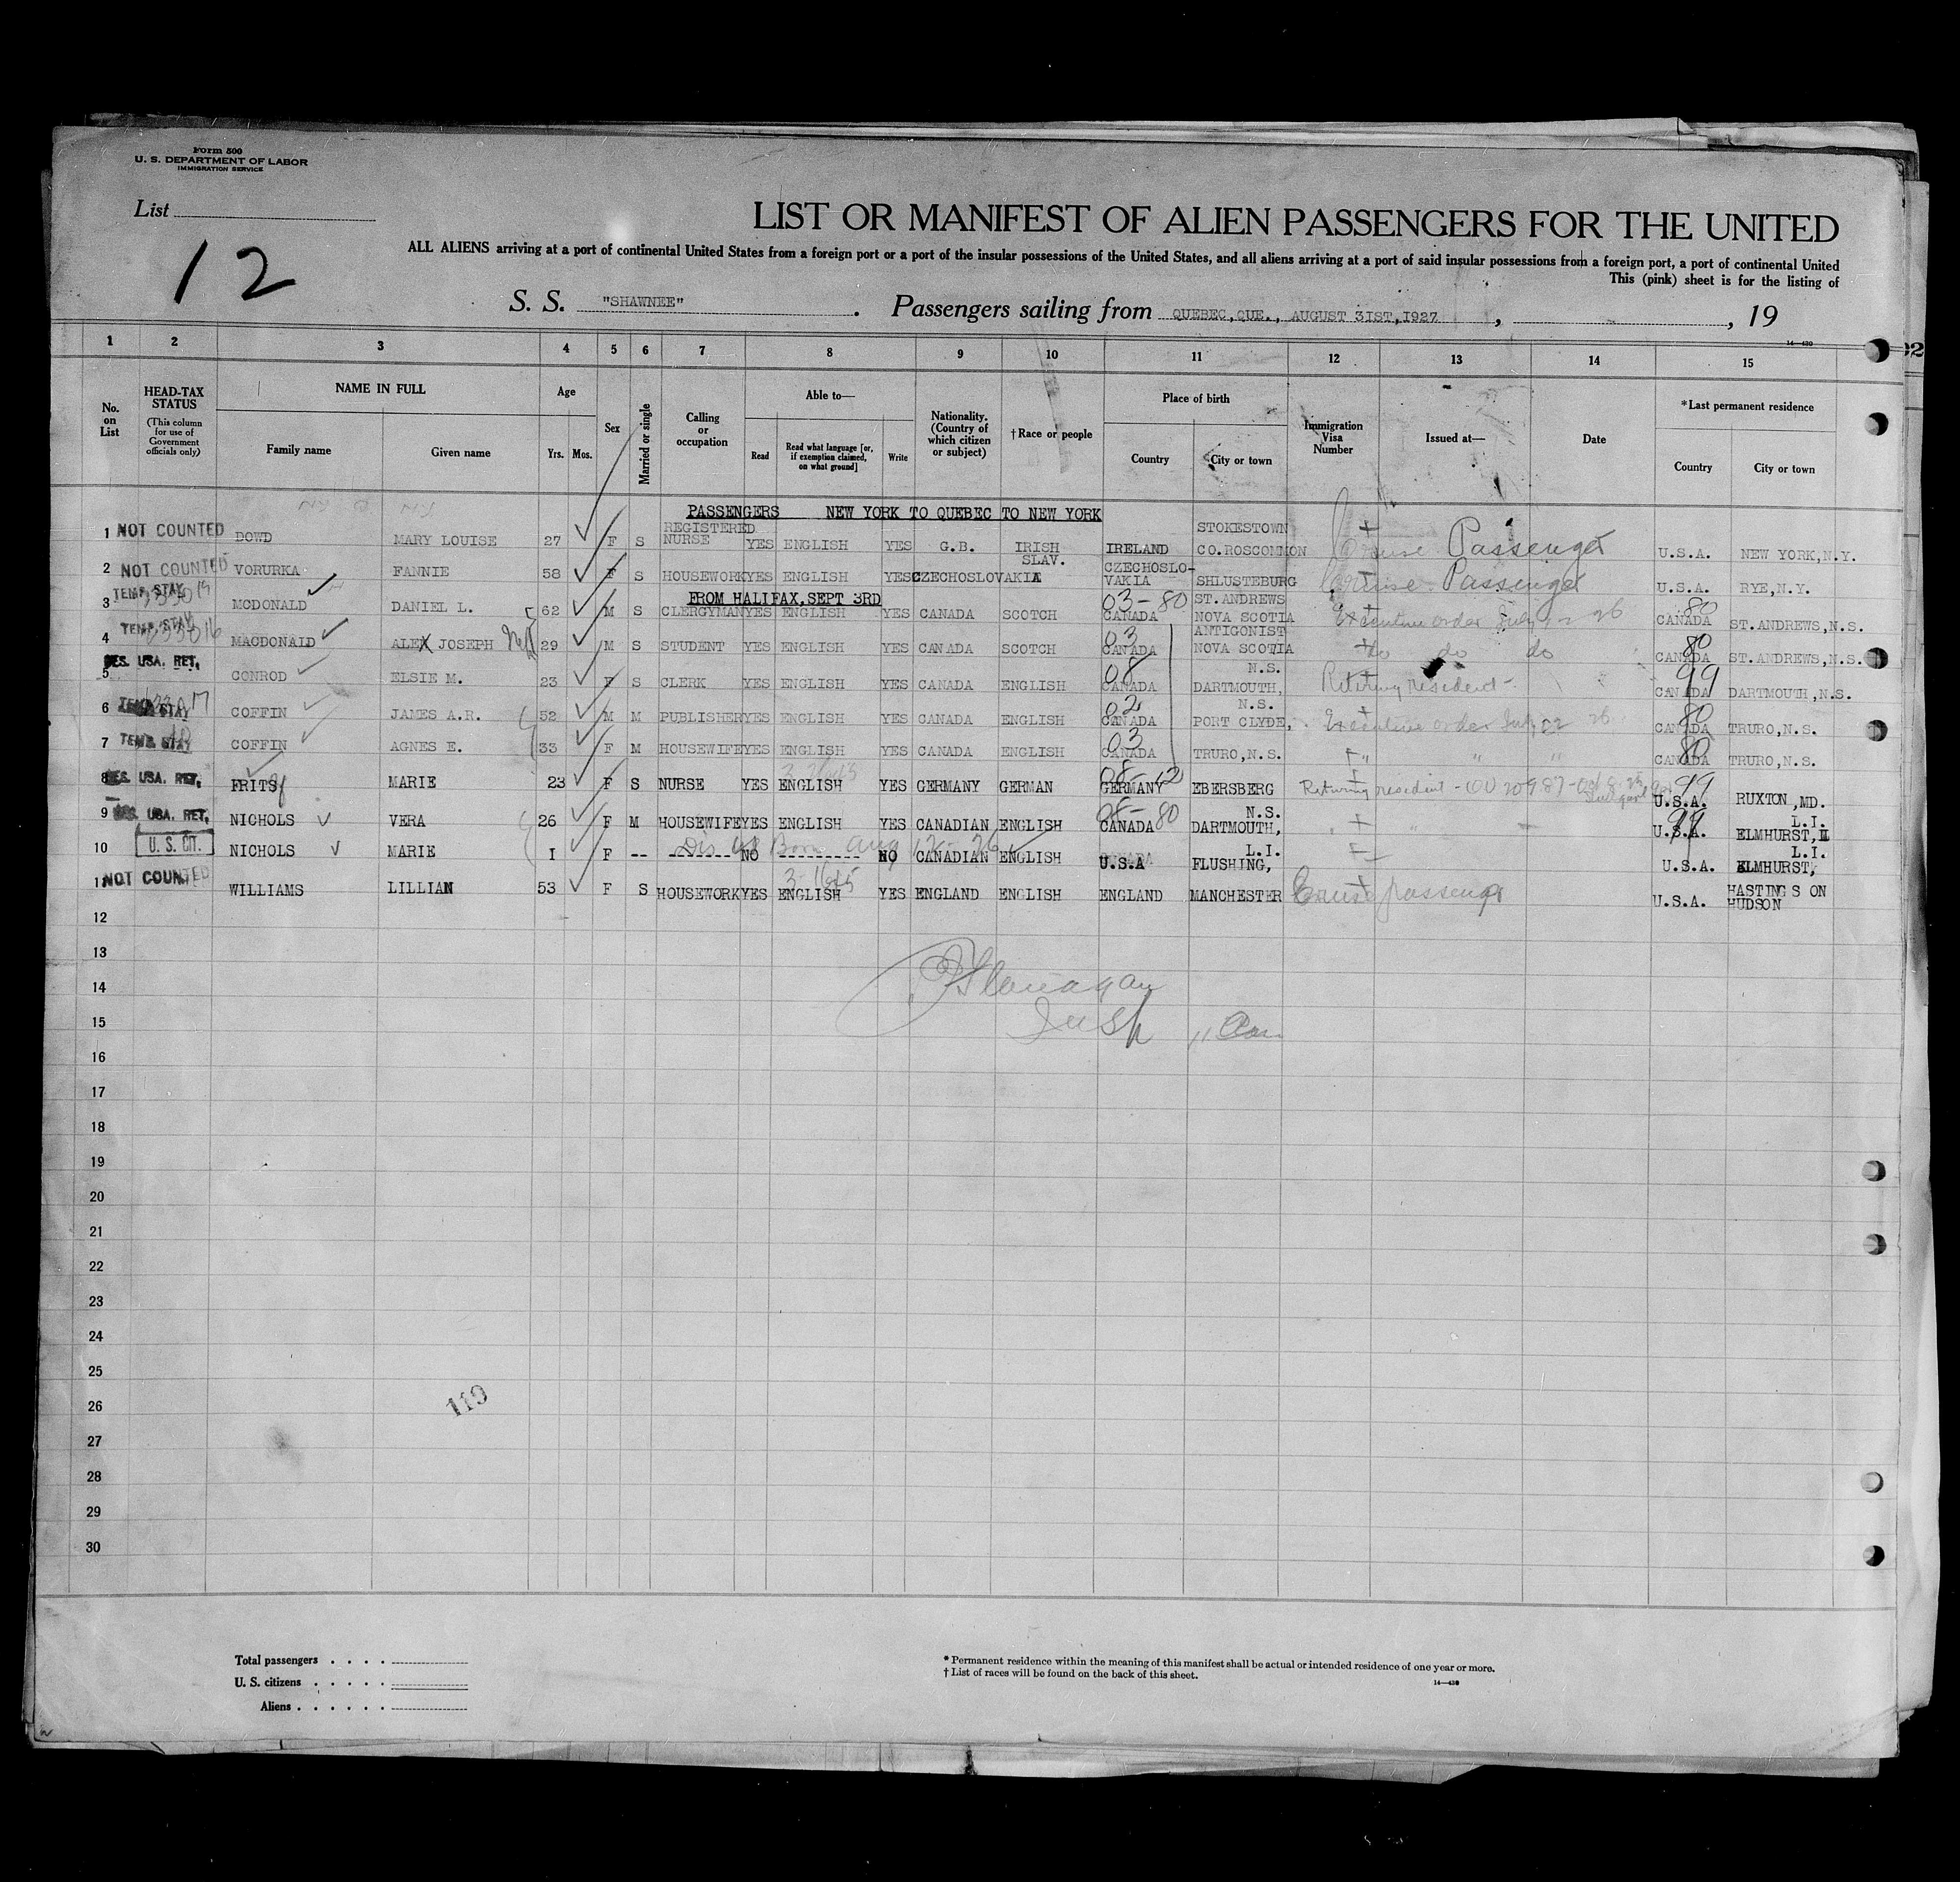 Form 500
U. S. DEPARTMENT OF LABOR
IMMIGRATION SERVICE
List
12
LIST OR MANIFEST OF ALIEN PASSENGERS FOR THE UNITED
ALL ALIENS arriving at a port of continental United States from a foreign port or a port of the insular possessions of the United States, and all aliens arriving at a port of said insular possessions from a foreign port, a port of continental United
This (pink) sheet is for the listing of
S. S. "SHAWNEE". Passengers sailing from QUEBEC, QUE., AUGUST 31ST, 1927, , 19
14—430
1 2 3 4 5 6 7 8 9 10 11 12 13 14 15
No. on List
HEAD-TAX STATUS (This column for use of Government officials only)
NAME IN FULL
Family name Given name
Age
Yrs. Mos.
Sex
Married or single
Calling or occupation
Able to—
Read
Read what language [or, if exemption claimed, on what ground]
Write
Nationality. (Country of which citizen or subject)
†Race or people
Place of birth
Country City or town
Immigration Visa Number
Issued at—
Date
*Last permanent residence
Country City or town
PASSENGERS NEW YORK TO QUEBEC TO NEW YORK
1 NOT COUNTED DOWD MARY LOUISE 27 F S REGISTERED NURSE YES ENGLISH YES G.B. IRISH IRELAND STOKESTOWN CO.ROSCOMMON Cruise Passenger U.S.A. NEW YORK,N.Y.
2 NOT COUNTED VORURKA FANNIE 58 F S HOUSEWORK YES ENGLISH YES CZECHOSLOVAKIA SLAV. CZECHOSLO-VAKIA SHLUSTEBURG Cruise Passenger U.S.A. RYE,N.Y.
FROM HALIFAX,SEPT 3RD
3 TEMP. STAY MCDONALD DANIEL L. 62 M S CLERGYMAN YES ENGLISH YES CANADA SCOTCH 03-80 CANADA ST.ANDREWS NOVA SCOTIA Executive order July 12 26 80 CANADA ST.ANDREWS,N.S.
4 TEMP. STAY MACDONALD ALEX JOSEPH 29 M S STUDENT YES ENGLISH YES CANADA SCOTCH 03 CANADA ANTIGONIST NOVA SCOTIA do do do 80 CANADA ST.ANDREWS,N.S.
5 RES. USA. RET. CONROD ELSIE M. 23 F S CLERK YES ENGLISH YES CANADA ENGLISH 08 CANADA N.S. DARTMOUTH, Returning resident 99 CANADA DARTMOUTH,N.S.
6 TEMP. STAY COFFIN JAMES A.R. 52 M M PUBLISHER YES ENGLISH YES CANADA ENGLISH 02 CANADA N.S. PORT CLYDE, Executive order July 26 80 CANADA TRURO,N.S.
7 TEMP. STAY COFFIN AGNES E. 33 F M HOUSEWIFE YES ENGLISH YES CANADA ENGLISH 03 CANADA TRURO,N.S. " " " 80 CANADA TRURO,N.S.
8 RES. USA. RET. FRITS MARIE 23 F S NURSE YES ENGLISH YES GERMANY GERMAN 08-12 GERMANY EBERSBERG Returning resident 99 U.S.A. RUXTON,MD.
9 RES. USA. RET. NICHOLS VERA 26 F M HOUSEWIFE YES ENGLISH YES CANADIAN ENGLISH 08-80 CANADA N.S. DARTMOUTH, 99 U.S.A. L.I. ELMHURST,
10 U. S. CIT. NICHOLS MARIE 1 F -- ------ NO --------- NO CANADIAN ENGLISH U.S.A L.I. FLUSHING, U.S.A. L.I. ELMHURST,
Born Aug 12 - 26
11 NOT COUNTED WILLIAMS LILLIAN 53 F S HOUSEWORK YES ENGLISH YES ENGLAND ENGLISH ENGLAND MANCHESTER Cruise passenger U.S.A. HASTINGS ON HUDSON
12
13
14
Flanagan
15
Insp
16
17
18
19
20
21
22
23
24
25
26
119
27
28
29
30
Total passengers
U. S. citizens
Aliens
* Permanent residence within the meaning of this manifest shall be actual or intended residence of one year or more.
† List of races will be found on the back of this sheet.
14—430